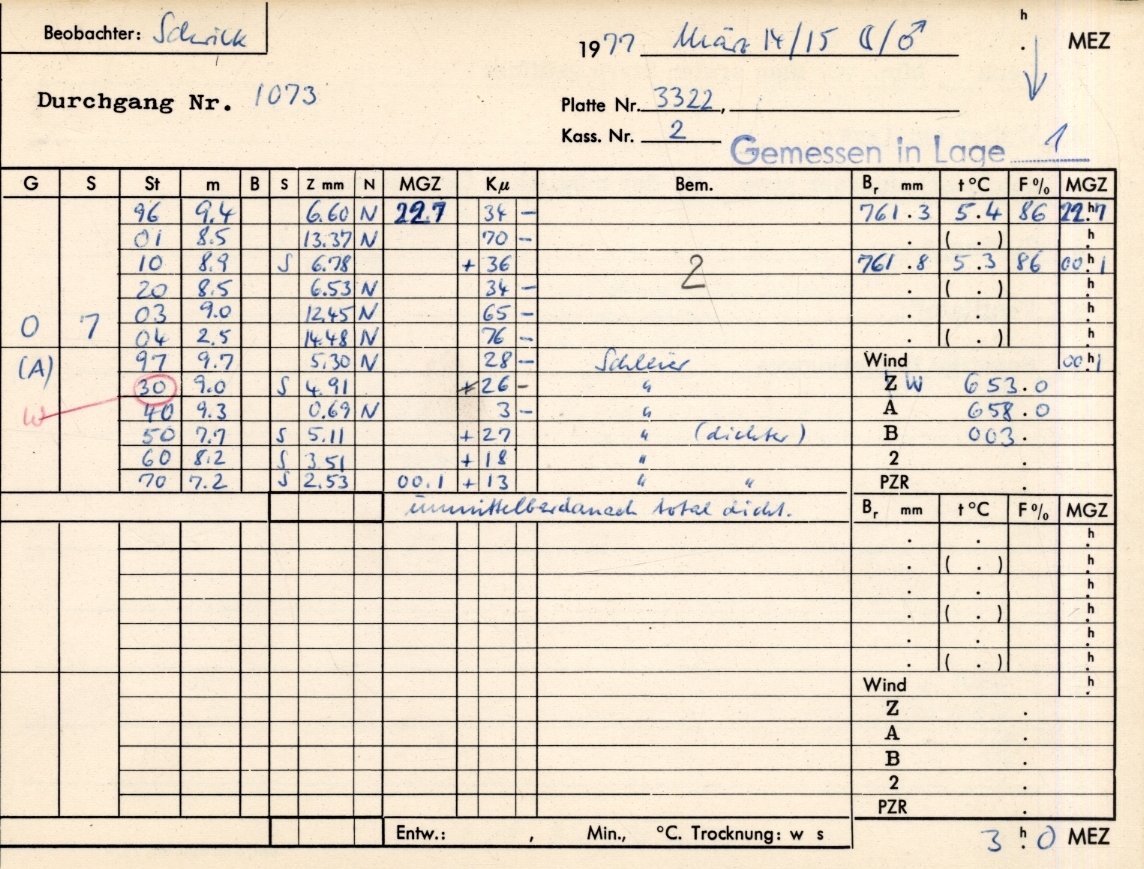 Beobachter: Schrick
1977 März 14/15 ☾/♂
h . MEZ
Durchgang Nr. 1073
Platte Nr. 3322,
Kass. Nr. 2
Gemessen in Lage 1
G S St m B S Z mm N MGZ Kμ Bem. Br mm t °C F% MGZ
96 9.4 6.60 N 22.7 34 – 761.3 5.4 86 22.h7
01 8.5 13.37 N 70 – . ( . ) h
10 8.9 S 6.78 + 36 2 761.8 5.3 86 00.h1
20 8.5 6.53 N 34 – . ( . ) h
03 9.0 12.45 N 65 – . . h
0 7 04 2.5 14.48 N 76 – . ( . ) h
(A) 97 9.7 5.30 N 28 – Schleier Wind 00.h1
30 9.0 S 4.91 + 26 – " Z W 653.0
W 40 9.3 0.69 N 3 – " A 658.0
50 7.7 S 5.11 + 27 " (dichter) B 003.
60 8.2 S 3.51 + 18 " 2 .
70 7.2 S 2.53 00.1 + 13 " " PZR .
unmittelbar danach total dicht. Br mm t °C F% MGZ
. . h
. ( . ) h
. . h
. ( . ) h
. . h
. ( . ) h
Wind h
Z .
A .
B .
2 .
PZR .
Entw.: , Min., °C. Trocknung: w s
3 h. 0 MEZ